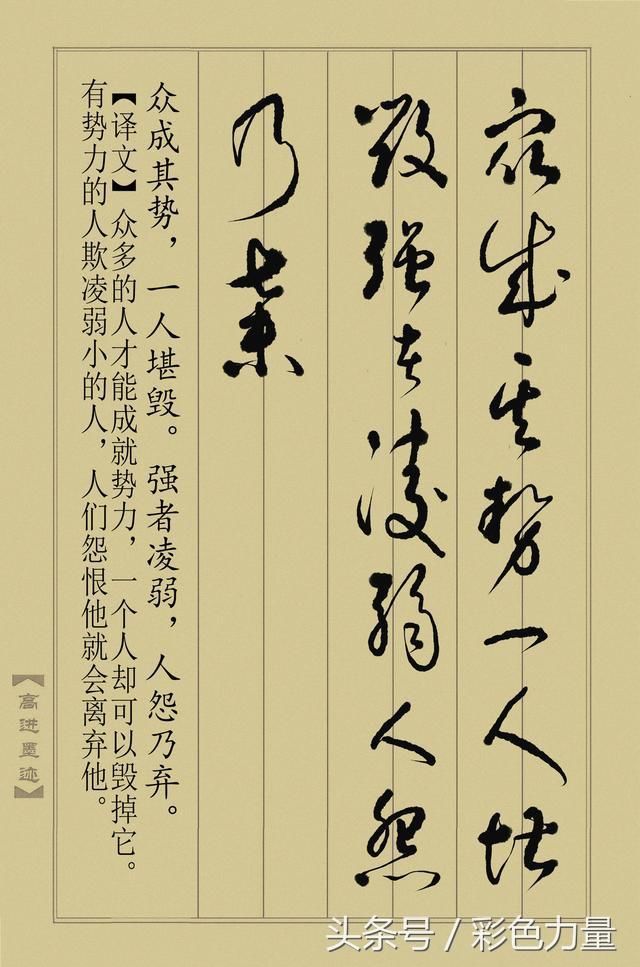 众成其势一人堪
毁强者凌弱人怨
乃弃
众成其势，一人堪毁。强者凌弱，人怨乃弃。
【译文】众多的人才能成就势力，一个人却可以毁掉它。
有势力的人欺凌弱小的人，人们怨恨他就会离弃他。
【高进墨迹】
头条号 / 彩色力量